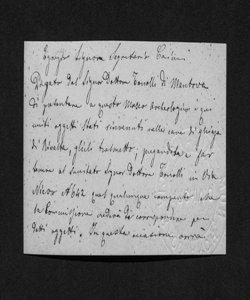 Egregio Signore Segretario Casini
Pregato dal Signor Dottore Tonelli di Mantova
di presentare a questo Museo Archeologico i qui
uniti oggetti stati rinvenuti nelle cave di ghiaja
di Rivalta, glieli trasmetto, pregandola a far
tenere al sunnotato Signor Dottore Tonelli in Via
N. 42 quel qualunque compenso che
la Commissione crederà da corrispondere per
detti oggetti. In questa occasione vorrà